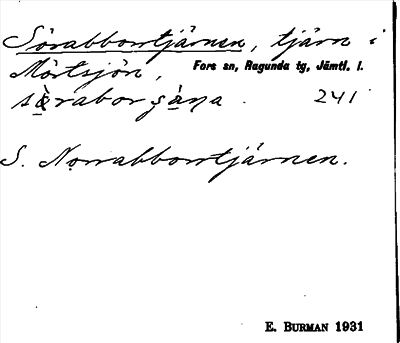 Sörabborrtjärnen, tjärn i
Mörtsjön, Fors sn, Ragunda tg, Jämtl. l.
241
S. Norrabborrtjärnen.
E. BURMAN 1931